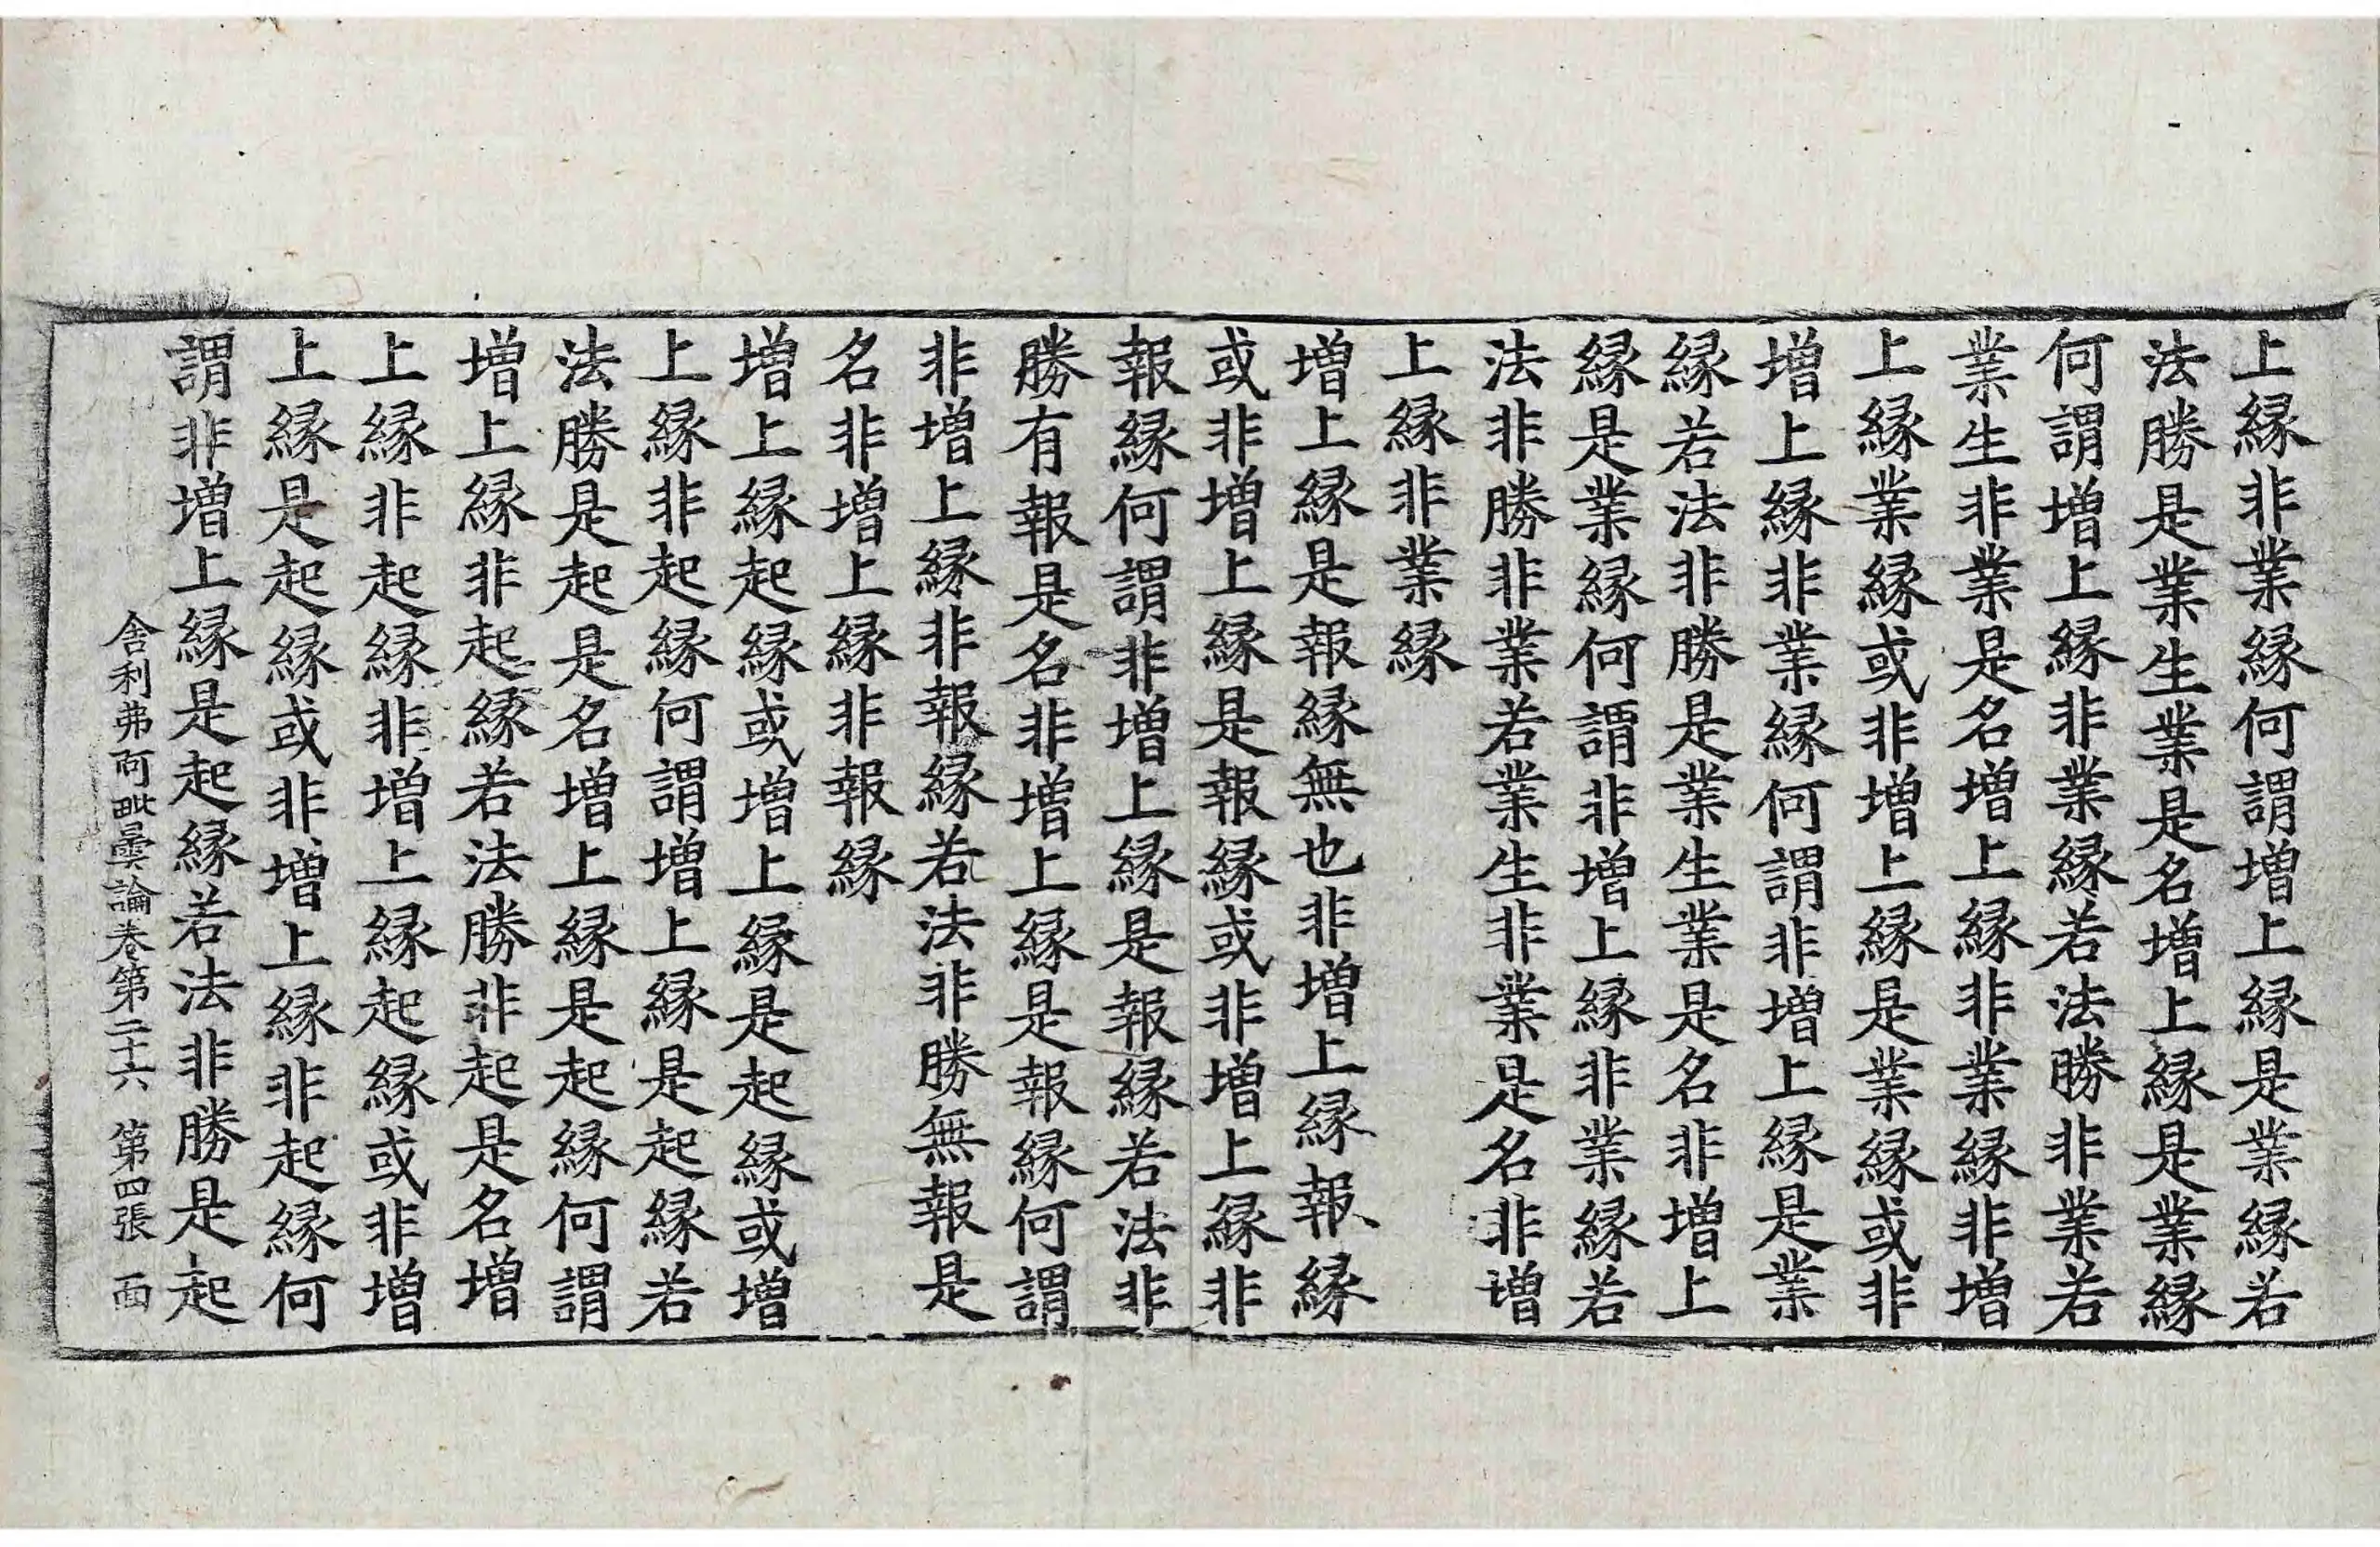 上縁非業縁何謂增上縁是業縁若
法勝是業生業是名增上縁是業縁
何謂增上縁非業縁若法勝非業若
業生非業是名增上縁非業縁非增
上縁業縁或非增上縁是業縁或非
增上縁非業縁何謂非增上縁是業
縁若法非勝是業生業是名非增上
縁是業縁何謂非增上縁非業縁若
法非勝非業若業生非業是名非增
上縁非業縁
增上縁是報縁無也非增上縁報縁
或非增上縁是報縁或非增上縁非
報縁何謂非增上縁是報縁若法非
勝有報是名非增上縁是報縁何謂
非增上縁非報縁若法非勝無報是
名非增上縁非報縁
增上縁起縁或增上縁是起縁或增
上縁非起縁何謂增上縁是起縁若
法勝是起是名增上縁是起縁何謂
增上縁非起縁若法勝非起是名增
上縁非起縁非增上縁起縁或非增
上縁是起縁或非增上縁非起縁何
謂非增上縁是起縁若法非勝是起
舍利弗阿毗曇論卷第二十六 第四張 西